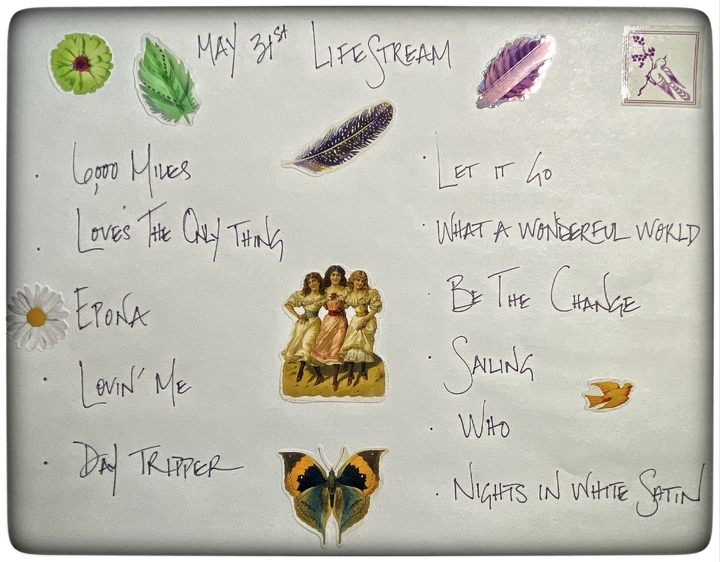 MAY 31ST LIFESTREAM
· 6,000 MILES
· LOVE'S THE ONLY THING
EPONA
· LOVIN' ME
· DAY TRIPPER
· LET IT GO
· WHAT A WONDERFUL WORLD
· BE THE CHANGE
· SAILING
· WHO
· NIGHTS IN WHITE SATIN